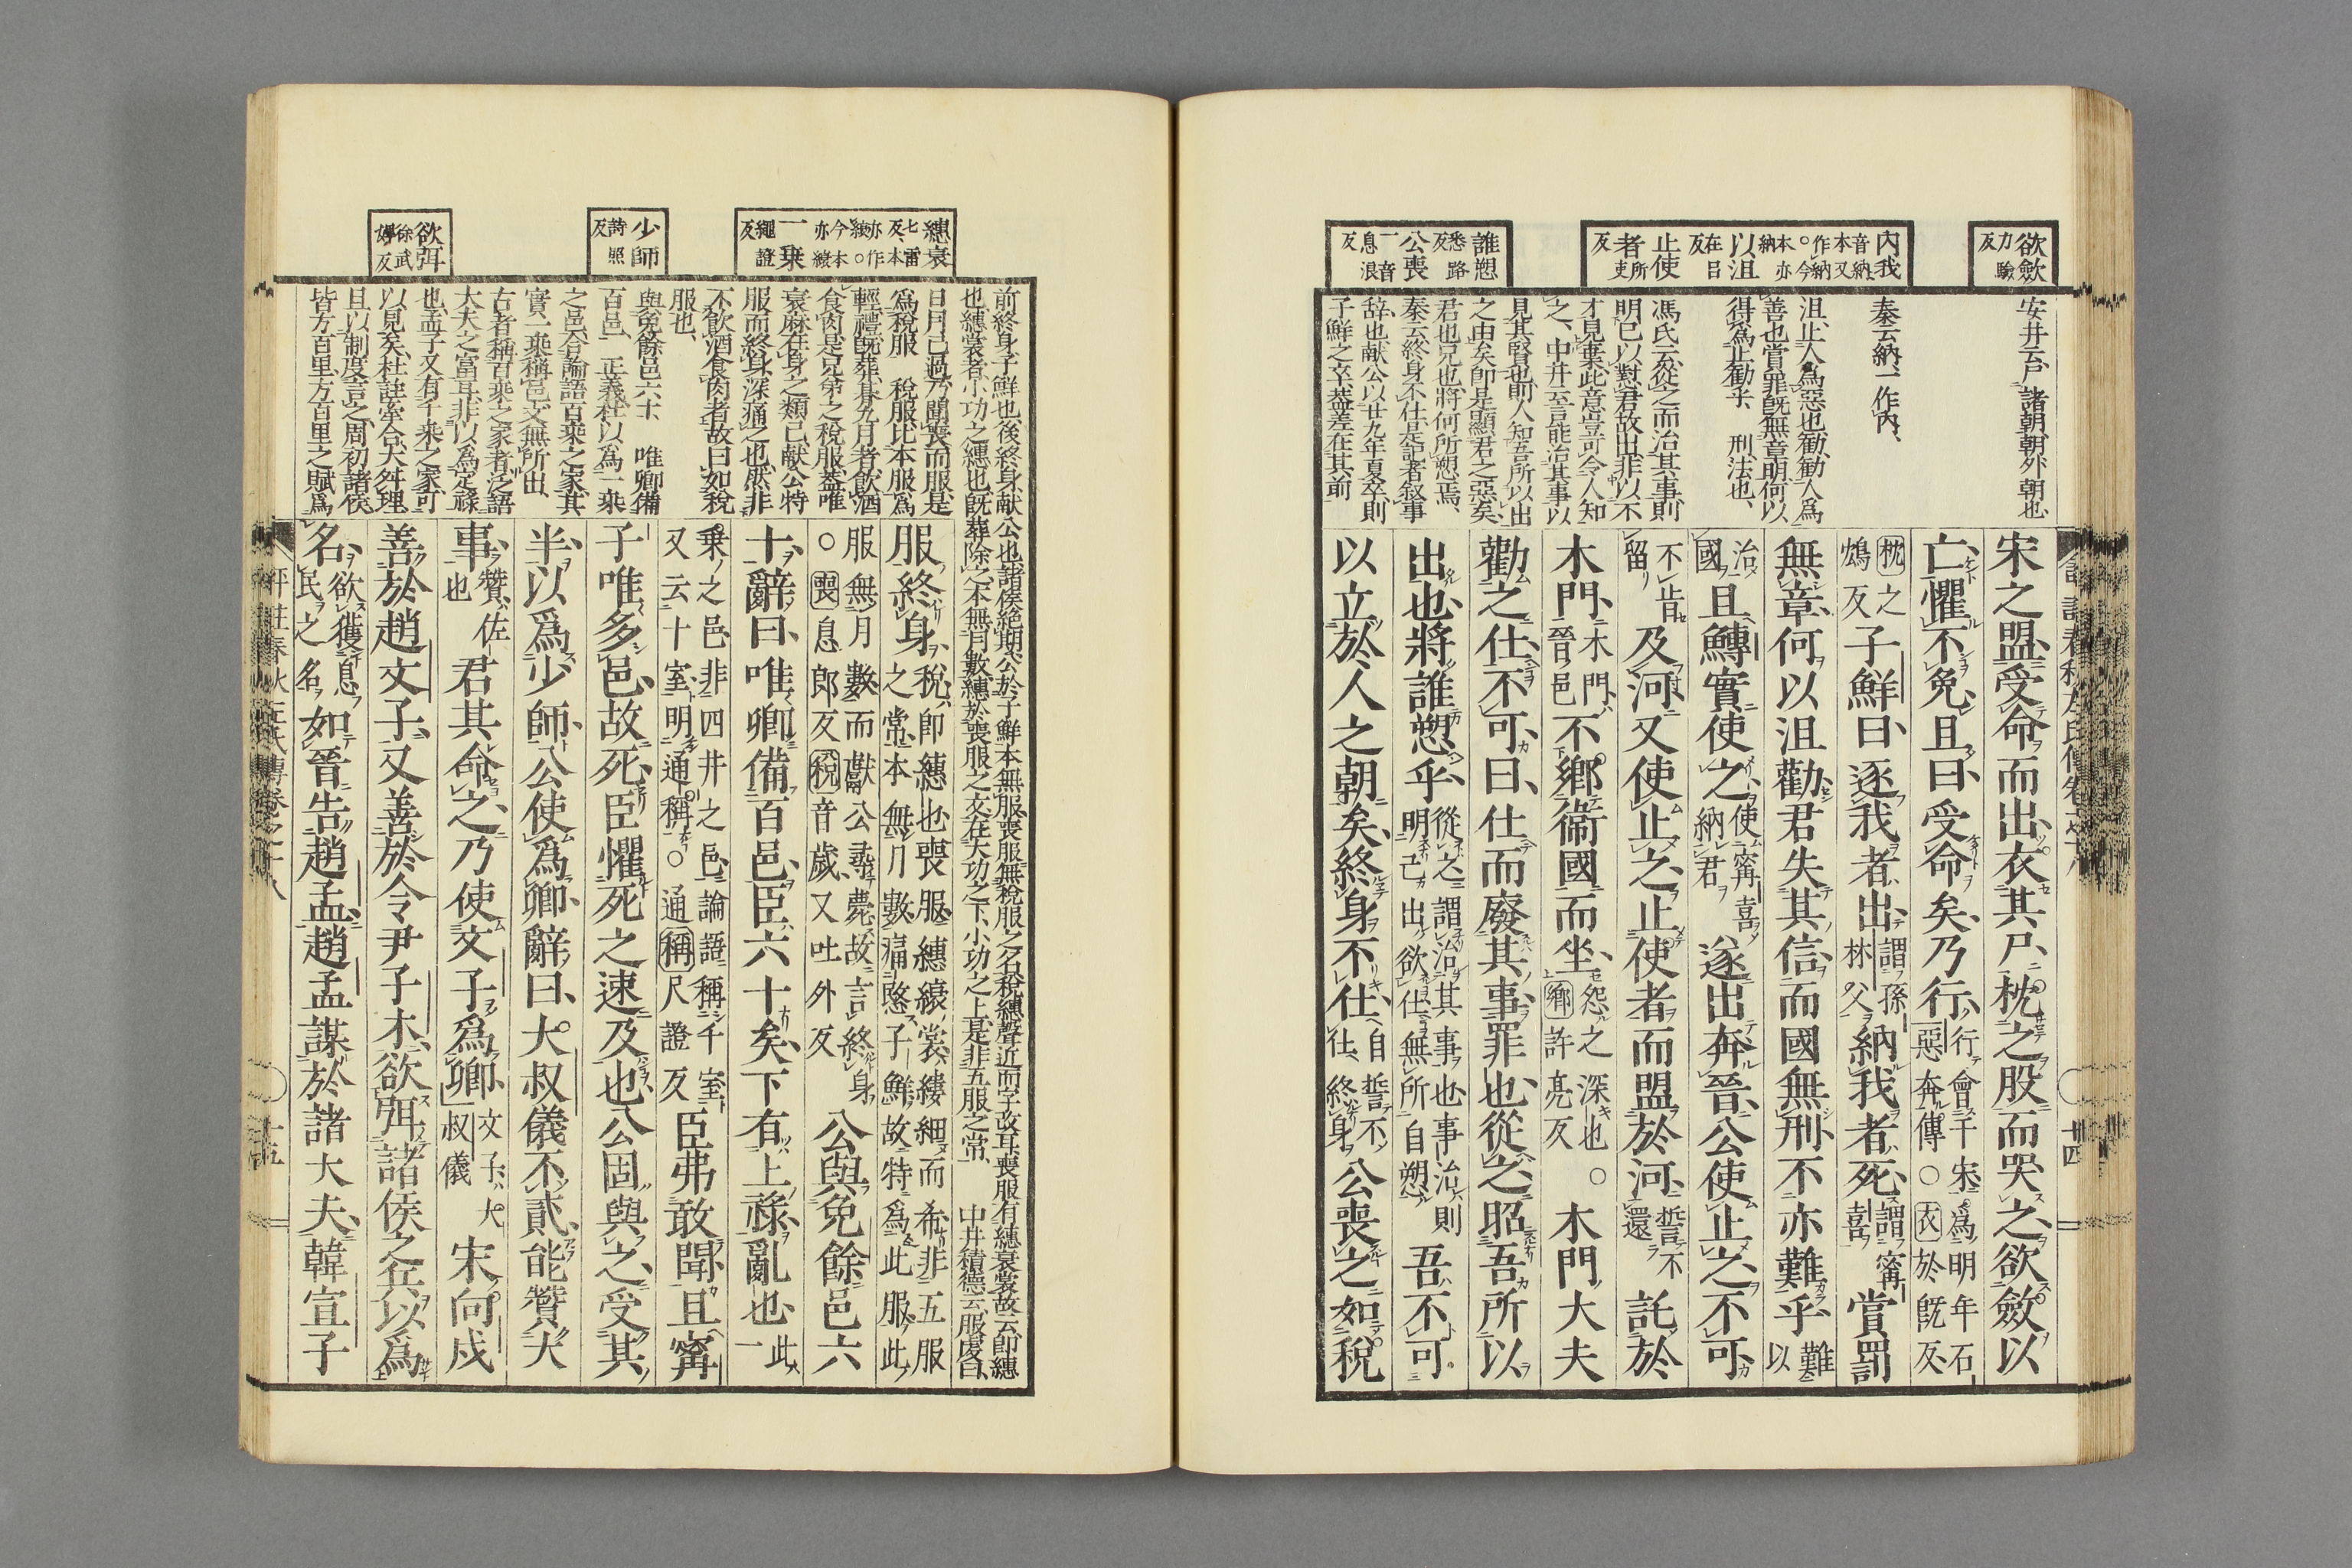 欲斂
力驗
反
內我
音納
本又
作納
○今
本亦
納
以沮
在呂
反
止使
者
所吏
反
誰愬
悉路
反
公喪
一音
息浪
反
安井云戸諸朝朝外朝也
秦云納一作內
沮止人為惡也勸勸人爲
善也賞罪既無章明何以
得爲止勸乎 刑法也
馮氏云從之而治其事則
明已以對君故出非以不
才見棄此意豈可令人知
之中井云言能治其事以
見其賢也則人知吾所以出
之由矣卽是顯君之惡矣
君也兄也將何所愬焉
秦云終身不仕是記者叙事
辞也献公以廿九年夏卒則
子鮮之卒葢差在其前
宋之盟受命而出衣其尸枕之股而哭之欲斂以
亡懼不免且曰受命矣乃行行會于宋爲明年石惡奔傳○衣於既反
枕之鴆反子鮮曰逐我者出謂孫林父納我者死謂甯喜賞罰
無章何以沮勸君失其信而國無刑不亦難乎難以
治國且鱄實使之使甯喜納君遂出奔晉公使止之不可
不肯留及河又使止之止使者而盟於河誓不還託於
木門木門晉邑不鄉衞國而坐怨之深也○鄉許亮反木門大夫
勸之仕不可曰仕而廢其事罪也從之昭吾所以
出也將誰愬乎從之謂治其事也事治則明己出欲仕無所自愬吾不可
以立於人之朝矣終身不仕自誓不仕終身公喪之如稅
繐衰
七雷
反本
亦作
縗○
今本
亦縗
一乗
繩證
反
少師
詩照
反
欲弭
徐武
婢反
前終身子鮮也後終身献公也諸侯絶期公於子鮮本無服喪服無稅服之名稅繐聲近而字故耳喪服有繐衰裳故云卽繐
也繐裳者小功之繐也既葬除之不無月數繐於喪服之文在大功之下小功之上是非五服之常 中井積德云服虔曰
日月已過乃聞喪而服是
爲稅服 稅服比本服爲
輕禮既葬朞九月者飲酒
食肉是兄弟之稅服葢唯
衰麻在身之類已献公特
服而終身深痛之也然非
不飲酒食肉者故曰如稅
服也
與免餘邑六十 唯卿備
百邑 正義杜以爲一乗
之邑合論語百乘之家其
實一乘稱邑文無所出
古者稱百乘之家者泛語
大夫之富耳非以爲定祿
也孟子又有千乘之家可
以見矣杜註牽合大舛理
且以制度言之周初諸侯
皆方百里方百里之賦爲
服終身稅卽繐也喪服繐縗裳縷細而希非五服之常本無月數痛愍子鮮故特爲此服此
服無月數而獻公尋薨故言終身○喪息郎反稅音歲又吐外反公與免餘邑六
十辭曰唯卿備百邑臣六十矣下有上祿亂也此一
乗之邑非四井之邑論語稱千室又云十室明通稱○通稱尺證反臣弗敢聞且甯
子唯多邑故死臣懼死之速及也公固與之受其
半以爲少師公使爲卿辭曰大叔儀不貳能贊大
事贊佐也君其命之乃使文子爲卿文子大叔儀宋向戌
善於趙文子又善於令尹子木欲弭諸侯之兵以爲
名欲獲息民之名如晉告趙孟趙孟謀於諸大夫韓宣子